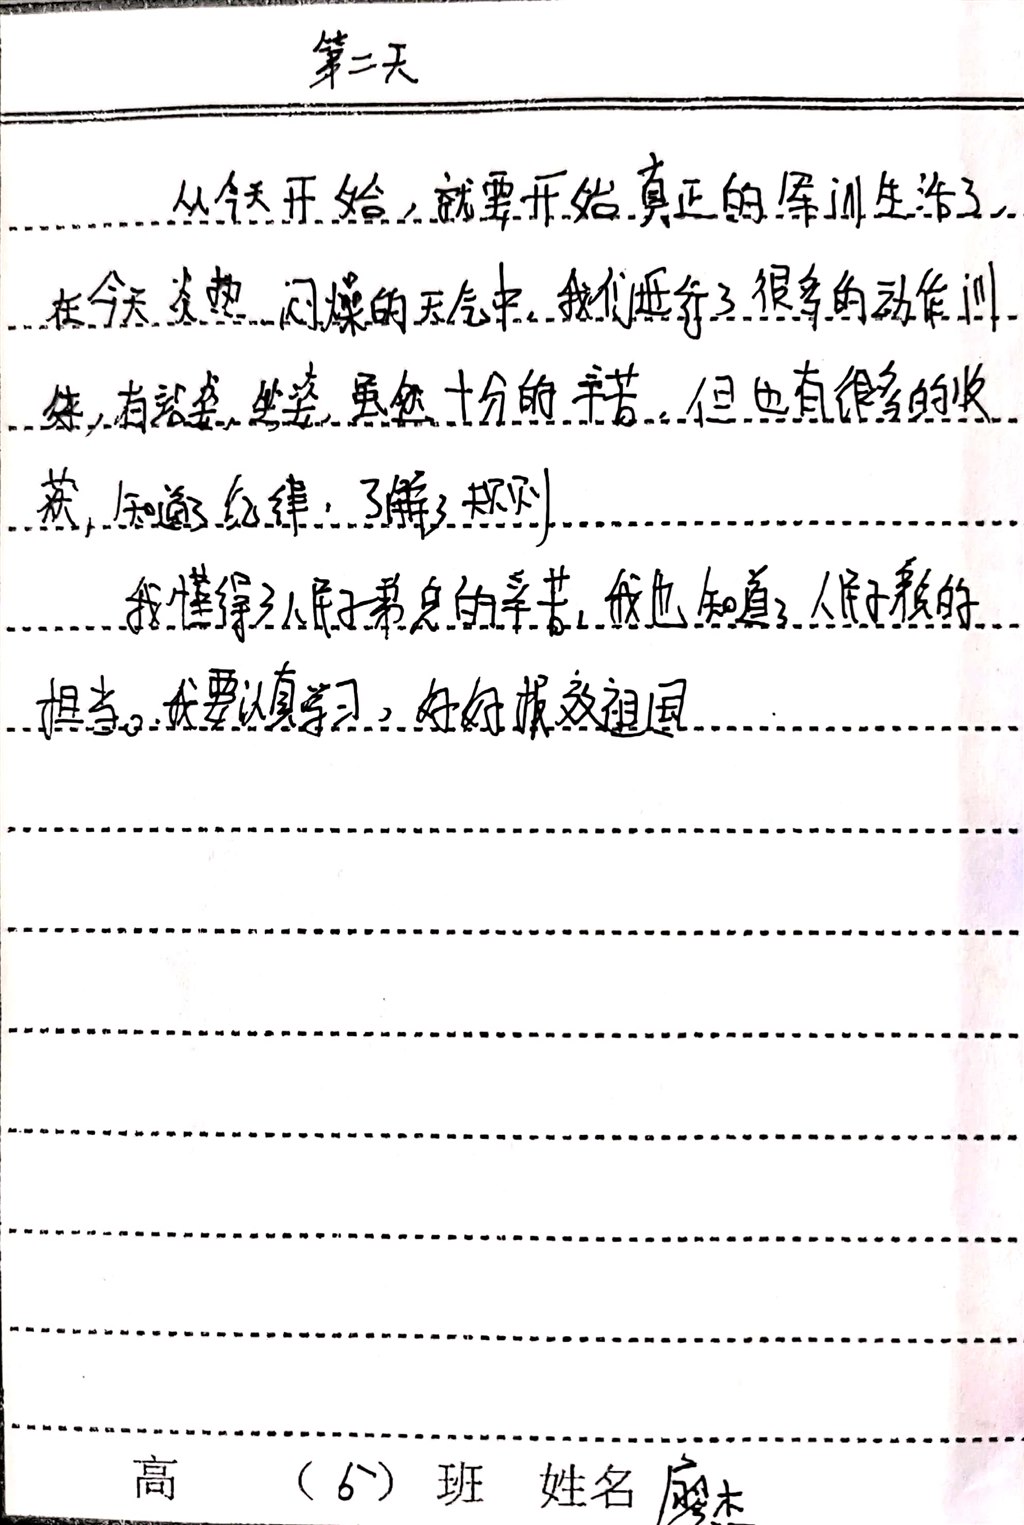 第二天
从今天开始，就要开始真正的军训生活了，
在今天炎热 闷燥的天气中，我们进行了很多的动作训
练，有站姿，坐姿，虽然十分的辛苦，但也有很多的收
获，知道了纪律，了解了规则
我懂得了人民子弟兵的辛苦，我也知道了人民子弟的
担当。我要认真学习，好好报效祖国
高 （6）班 姓名 廖杰